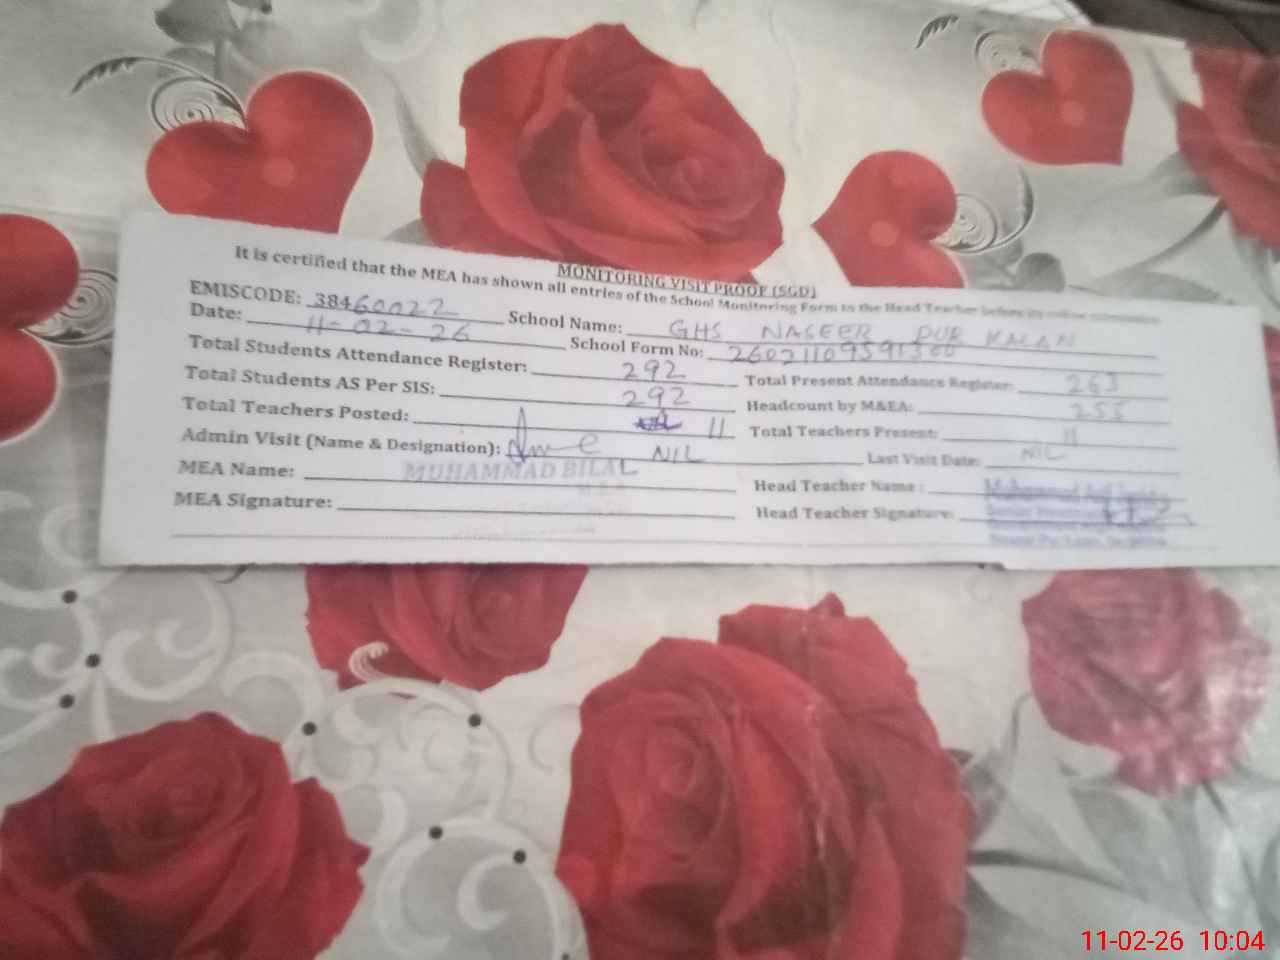 MONITORING VISIT PROOF (SGD)
It is certified that the MEA has shown all entries of the School Monitoring Form to the Head Teacher before its online
EMISCODE: 38460022 School Name: GHS NASEER PUR KALAN
Date: 11-02-26 School Form No:
Total Students Attendance Register: 292 Total Present Attendance Register: 263
Total Students AS Per SIS: 292 Headcount by M&EA: 255
Total Teachers Posted: 11 Total Teachers Present: 11
Admin Visit (Name & Designation): NIL Last Visit Date: NIL
MEA Name: MUHAMMAD BILAL Head Teacher Name:
MEA Signature: Head Teacher Signature:
11-02-26 10:04